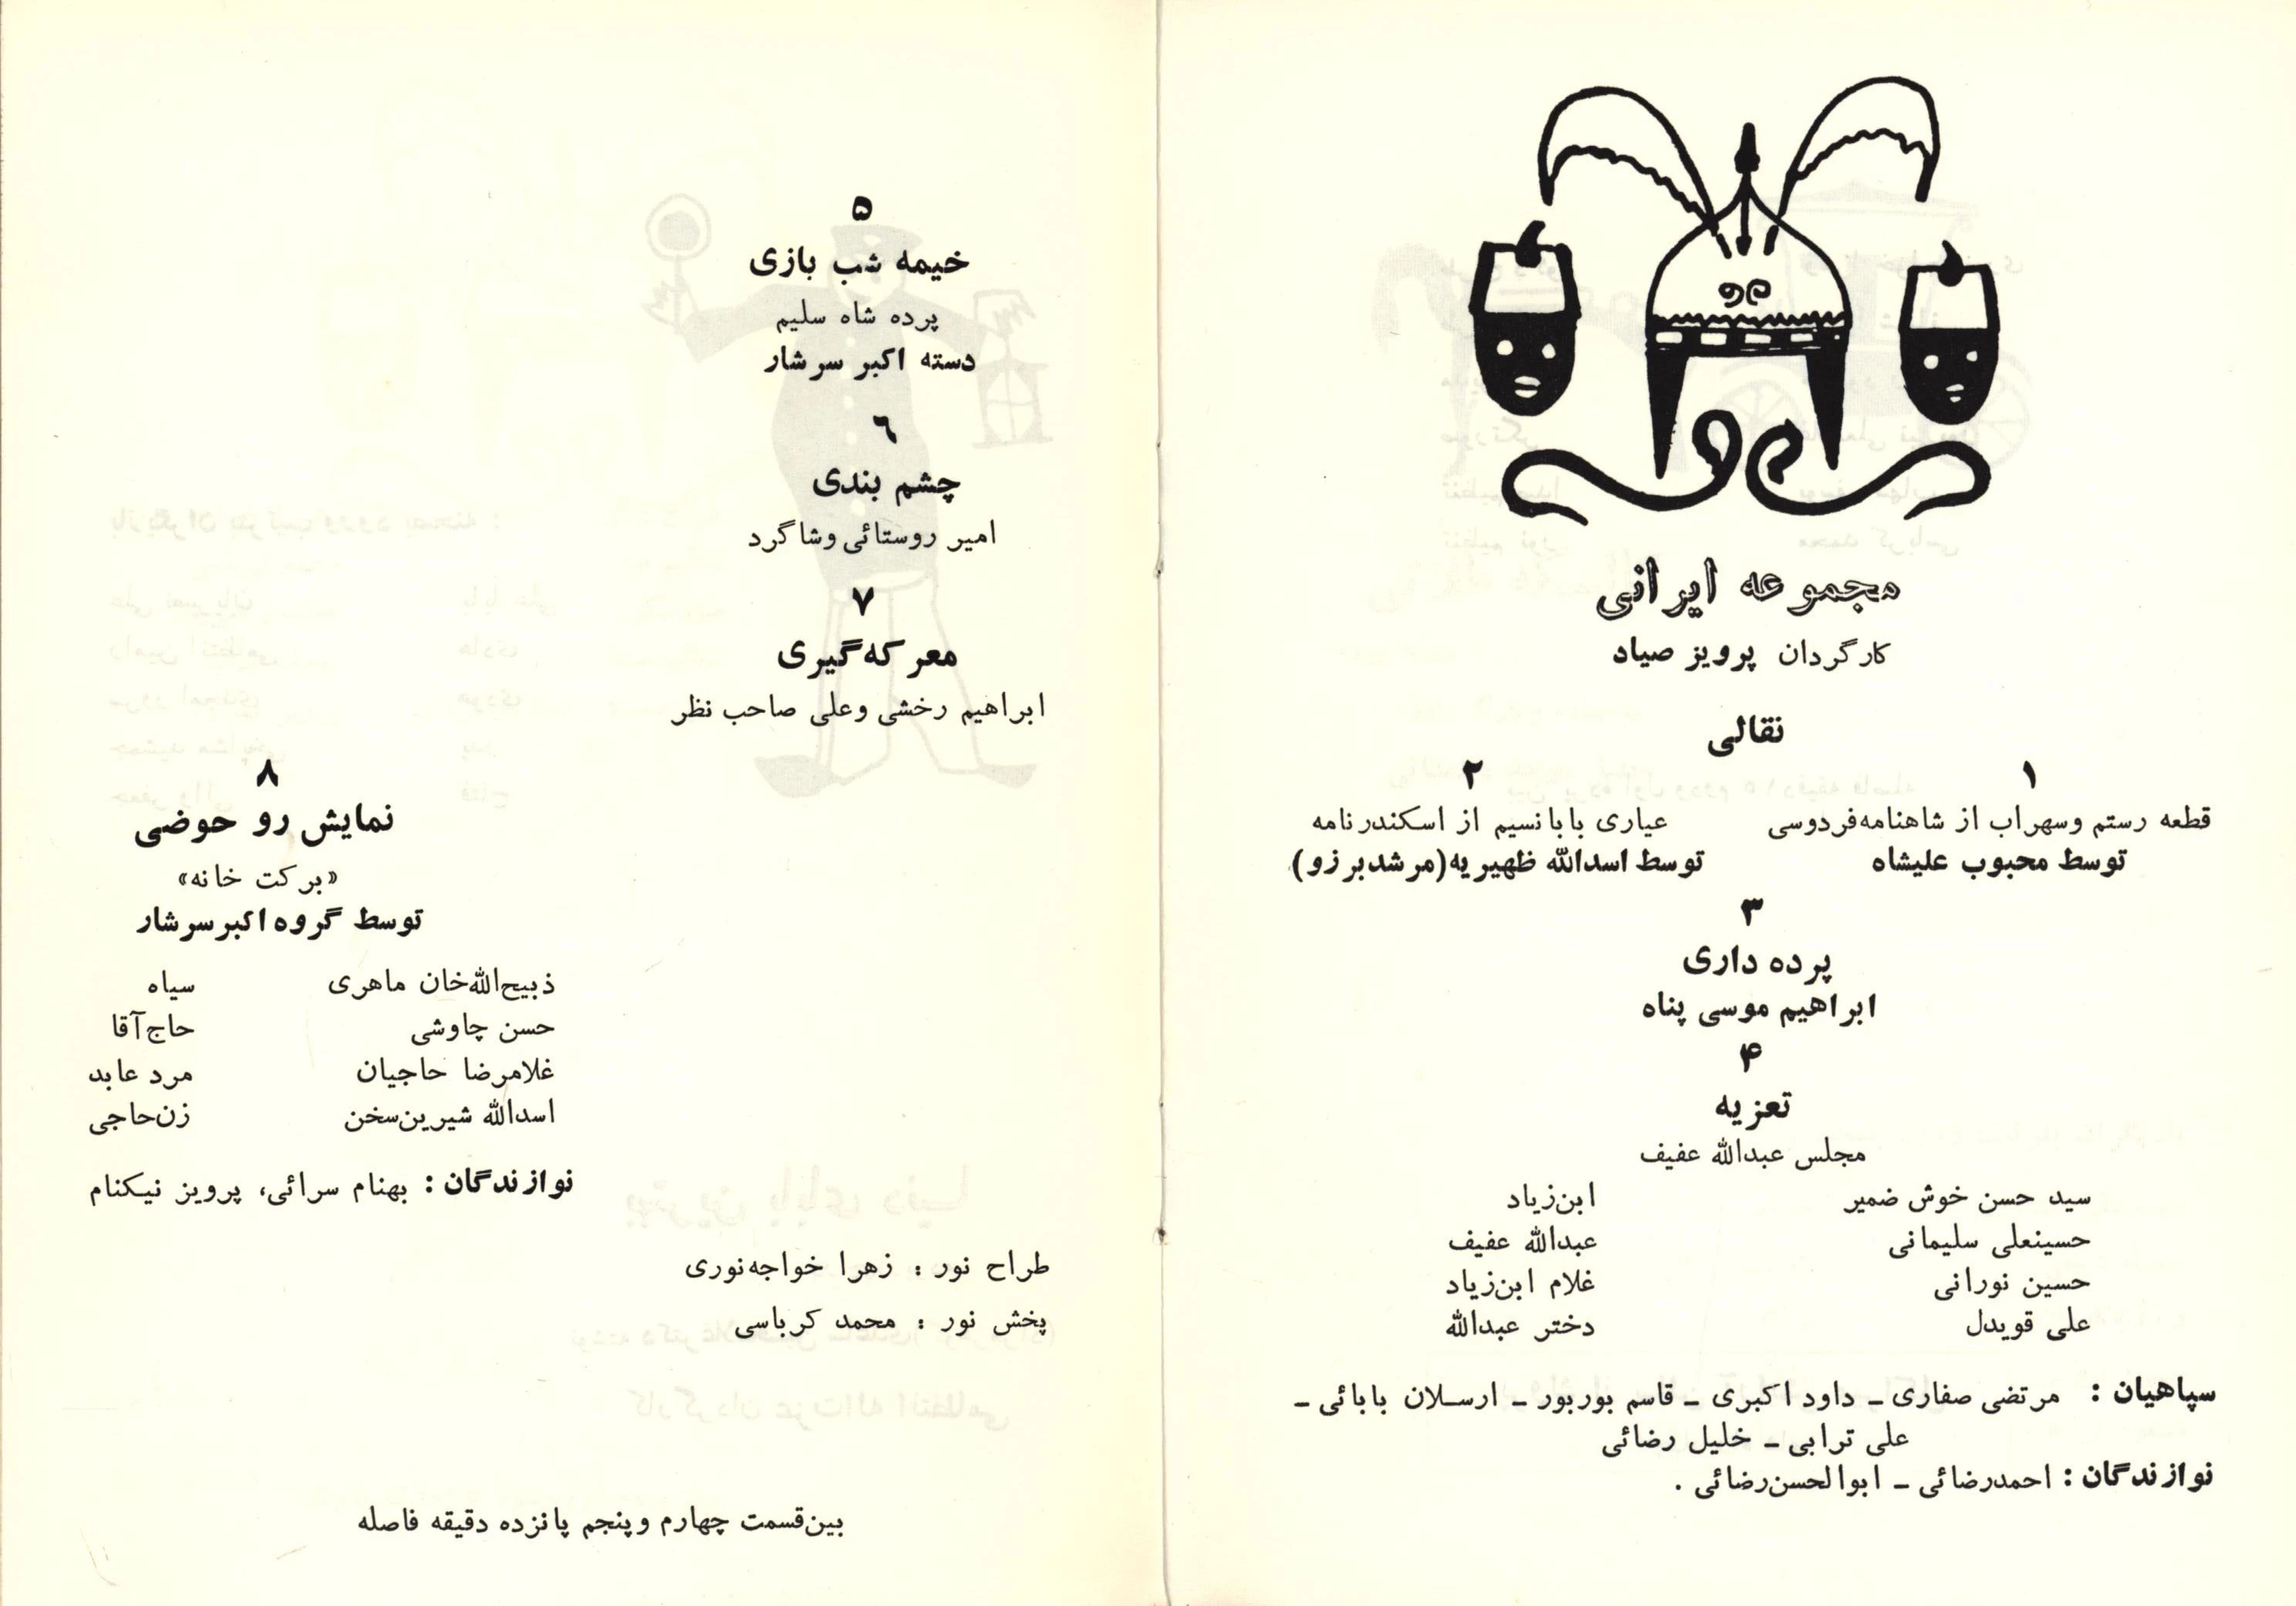 مجموعه ایرانی
کارگردان پرویز صیاد
نقالی
۱
قطعه رستم وسهراب از شاهنامه‌فردوسی
توسط محبوب علیشاه
۲
عیاری بابا نسیم از اسکندرنامه
توسط اسدالله ظهیریه(مرشدبرزو)
۳
پرده داری
ابراهیم موسی پناه
۴
تعزیه
مجلس عبدالله عفیف
سید حسن خوش ضمیر ابن‌زیاد
حسینعلی سلیمانی عبدالله عفیف
حسین نورانی غلام ابن‌زیاد
علی قویدل دختر عبدالله
سپاهیان : مرتضی صفاری ـ داود اکبری ـ قاسم بوربور ـ ارسلان بابائی ـ
علی ترابی ـ خلیل رضائی
نوازندگان : احمدرضائی ـ ابوالحسن‌رضائی .
۵
خیمه شب بازی
پرده شاه سلیم
دسته اکبر سرشار
۶
چشم بندی
امیر روستائی وشاگرد
۷
معرکه‌گیری
ابراهیم رخشی وعلی صاحب نظر
۸
نمایش رو حوضی
«برکت خانه»
توسط گروه اکبرسرشار
ذبیح‌الله‌خان ماهری سیاه
حسن چاوشی حاج‌آقا
غلامرضا حاجیان مرد عابد
اسدالله شیرین‌سخن زن‌حاجی
نوازندگان : بهنام سرائی، پرویز نیکنام
طراح نور : زهرا خواجه‌نوری
پخش نور : محمد کرباسی
بین‌قسمت چهارم وپنجم پانزده دقیقه فاصله